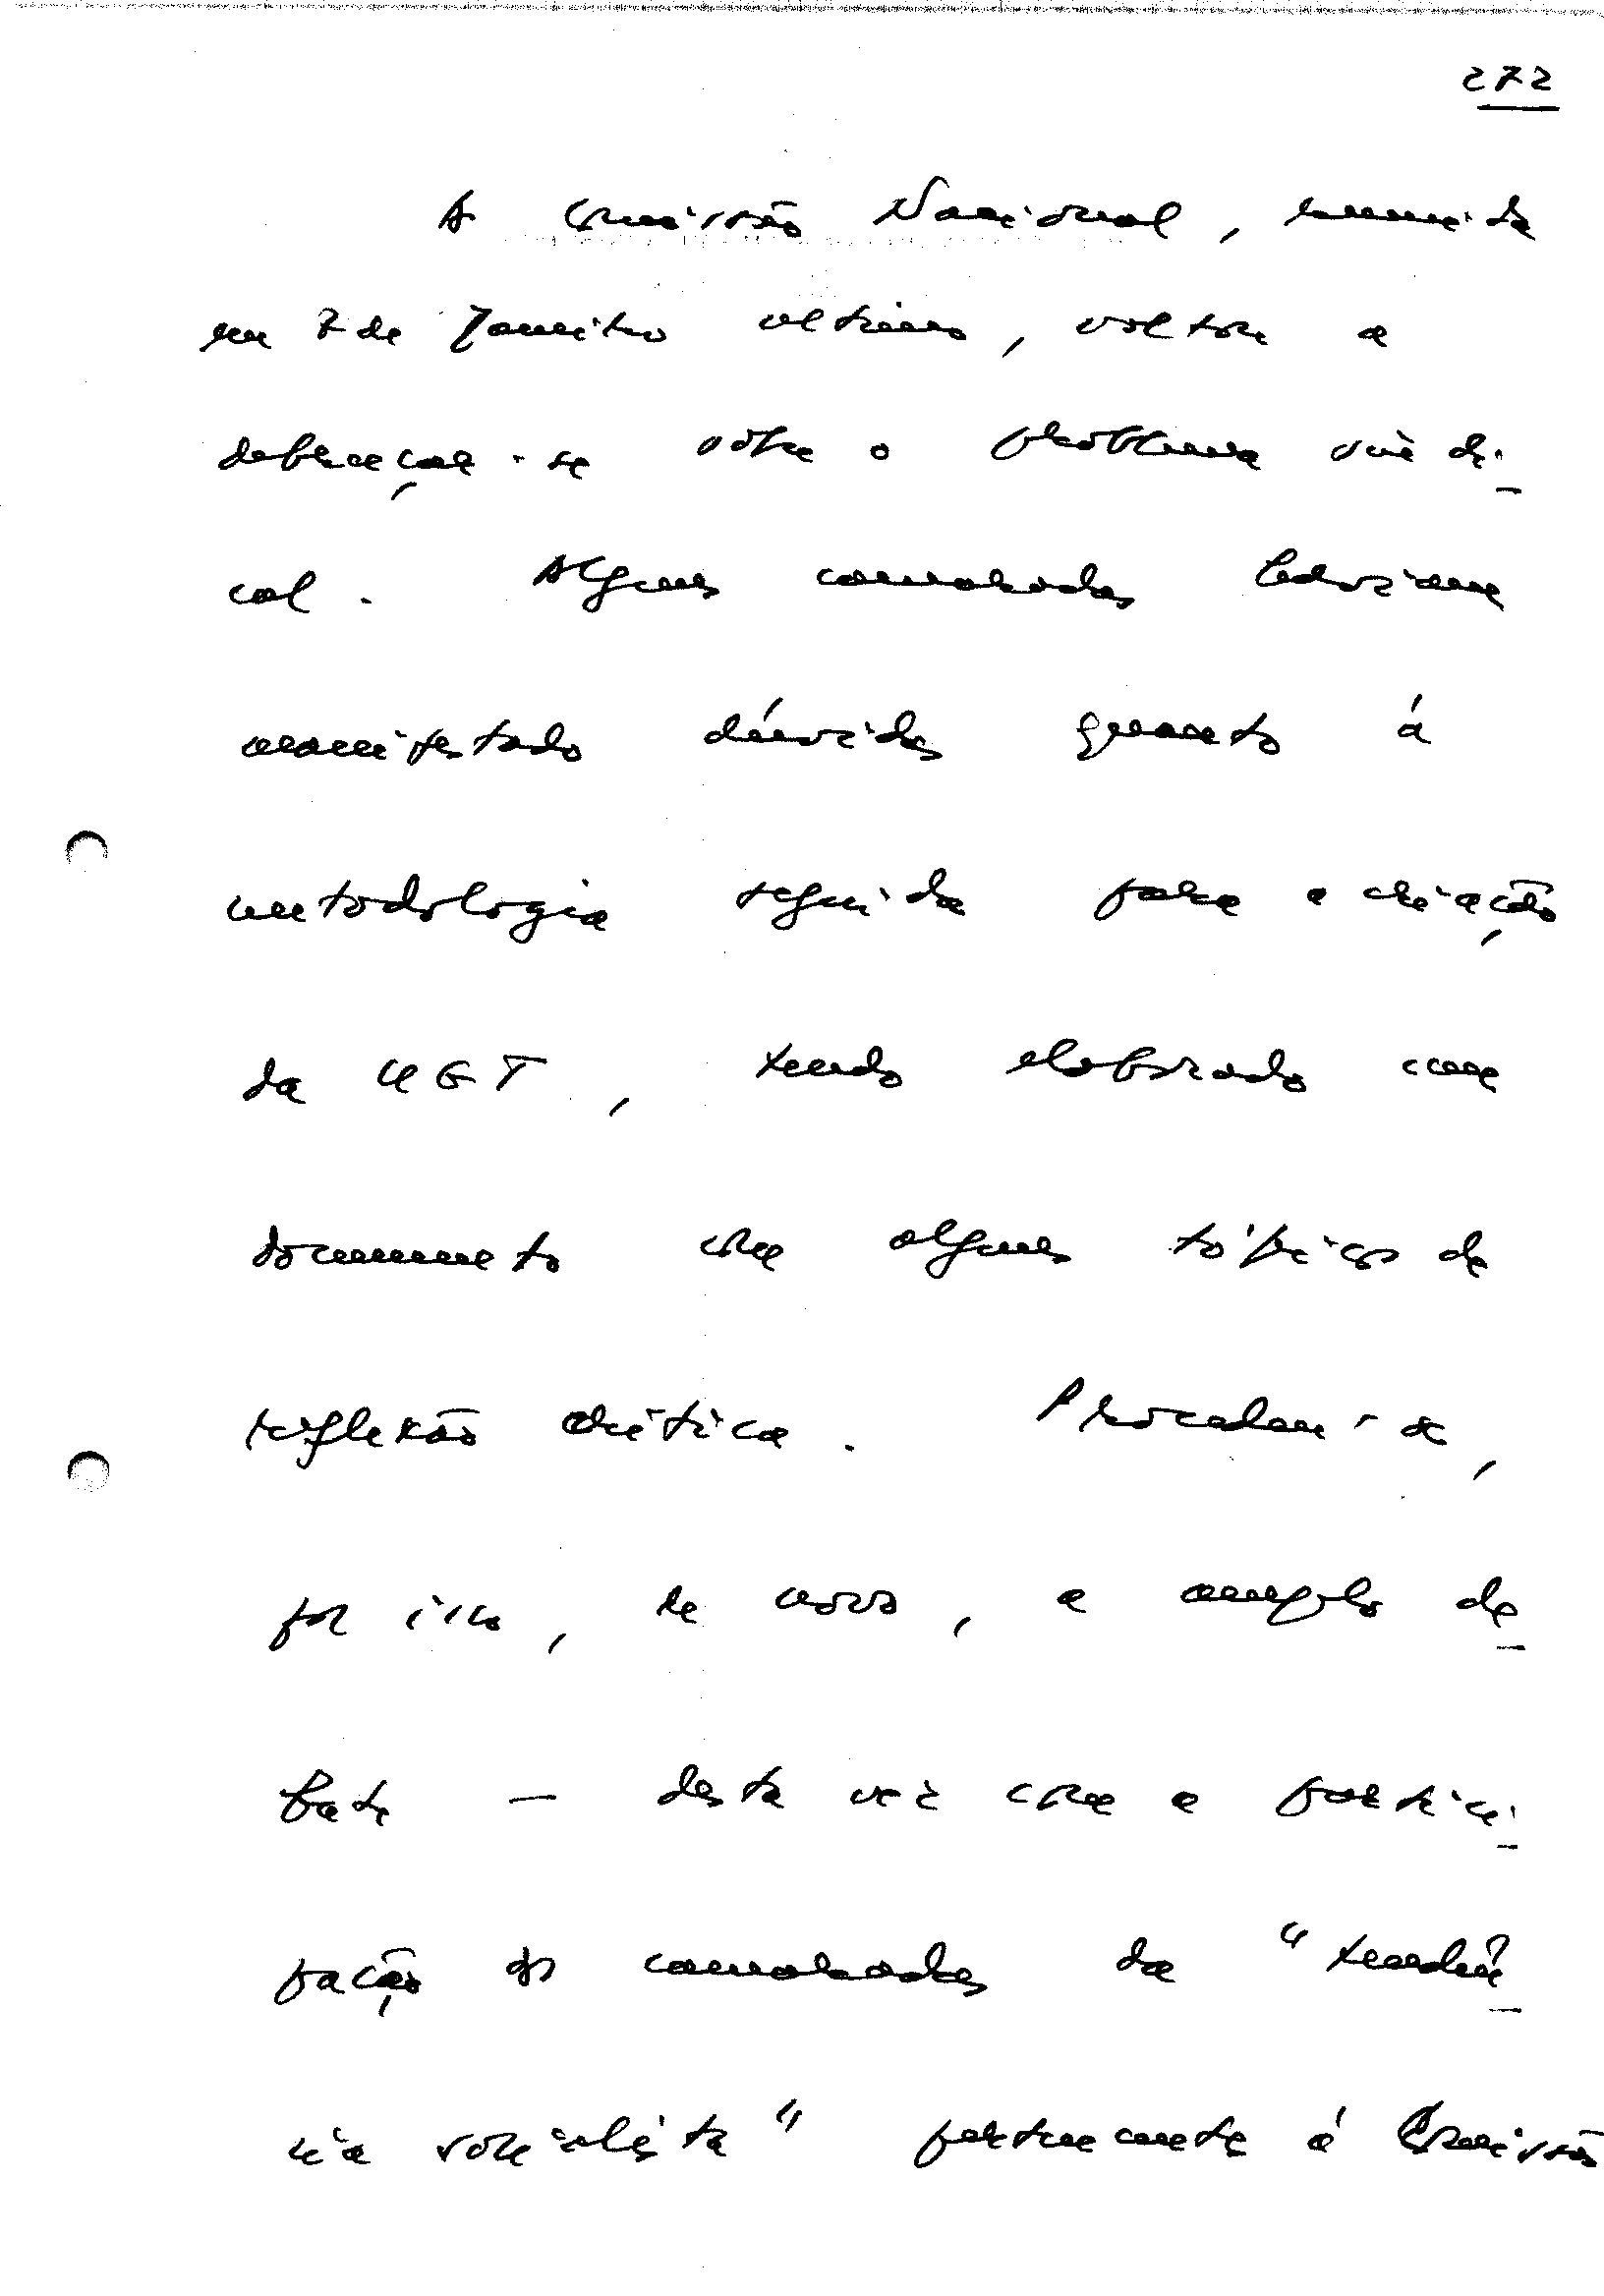 272
A Comissão Nacional, reunida
em 7 de Janeiro ultimo, voltou a
debruçar-se sobre o problema sindi-
cal. Alguns camaradas haviam
manifestado dúvidas quanto á
metodologia seguida para a criação
da UGT, tendo elaborado um
documento com alguns tópicos de
reflexão crítica. Procedeu-se,
por isso, de novo, a amplo de-
bate — desta vez com a partici-
pação dos camaradas da "tendên-
cia socialista" pertencente á Comissão